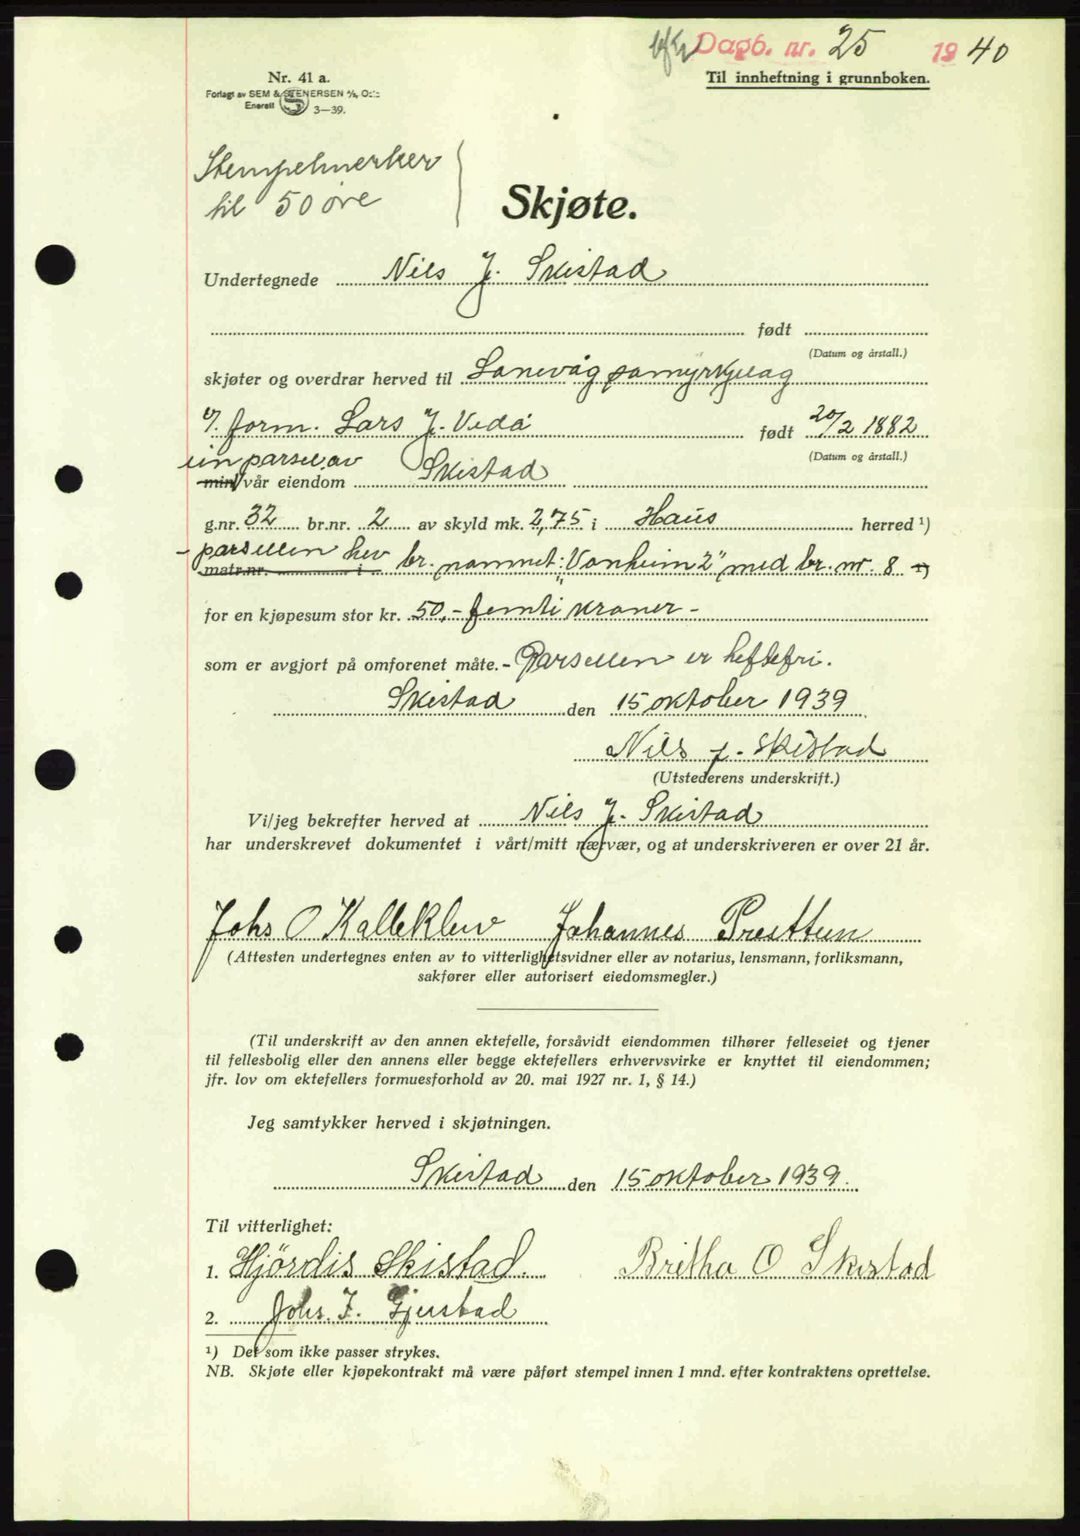 Dagb. nr. 25 1940
Til innheftning i grunnboken.
Nr. 41 a.
Forlagt av SEM & STENERSEN A/S, Oslo
Enerett S 3—39.
Stempelmerker
til 50 øre
Skjøte.
Undertegnede Nils J. Skistad
født
(Datum og årstall.)
skjøter og overdrar herved til Lonevåg samyrkjelag
v/ form. Lars J. Vedå født 20/2 1882
(Datum og årstall.)
ein parsel av
min/vår eiendom Skistad
g.nr. 32 br.nr. 2 av skyld mk. 2,75 i Haus herred ¹)
- parsellen hev br. namnet: "Vonheim 2" med br. nr. 8 ¹)
matr.nr. i
for en kjøpesum stor kr. 50,- femti kroner -
som er avgjort på omforenet måte. - Parsellen er heftefri.
Skistad den 15 oktober 1939
Nils J. Skistad
(Utstederens underskrift.)
Vi/jeg bekrefter herved at Nils J. Skistad
har underskrevet dokumentet i vårt/mitt nærvær, og at underskriveren er over 21 år.
Johs O Kalleklev Johannes Prestun
(Attesten undertegnes enten av to vitterlighetsvidner eller av notarius, lensmann, forliksmann,
sakfører eller autorisert eiedomsmegler.)
(Til underskrift av den annen ektefelle, forsåvidt eiendommen tilhører felleseiet og tjener
til fellesbolig eller den annens eller begge ektefellers erhvervsvirke er knyttet til eiendommen;
jfr. lov om ektefellers formuesforhold av 20. mai 1927 nr. 1, § 14.)
Jeg samtykker herved i skjøtningen.
Skistad den 15 oktober 1939.
Til vitterlighet:
1. Hjördis Skistad. Britha O Skistad
2. Johs. J. Gjerstad
¹) Det som ikke passer strykes.
NB. Skjøte eller kjøpekontrakt må være påført stempel innen 1 mnd. efter kontraktens oprettelse.